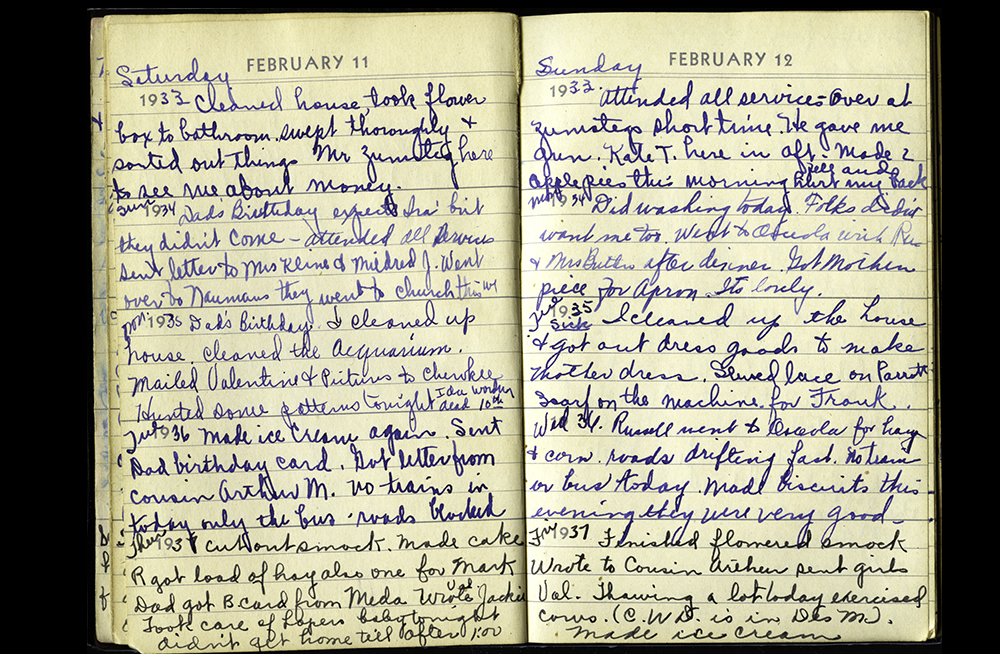 Saturday
FEBRUARY 11
1933 Cleaned house, took flower
box to bathroom. swept thoroughly &
sorted out things Mr Zumsteg here
to see me about money.
Sun 1934 Dad's Birthday expected Ira' but
they didn't come - attended all services
sent letter to Mrs Kline & Mildred J. Went
over to Naumans they went to church this
Mon 1935 Dad's Birthday. I cleaned up
house. cleaned the Acquarium.
Mailed Valentine & Pictures to Cherokee
Hunted some patterns tonight Ida Worden
dead 10th
Tues 1936 Made ice cream again. Sent
Dad birthday card. Got letter from
cousin Arthur M. no trains in
today only the bus - roads blocked
Thur 1937 cut out smock. Made cake
R got load of hay also one for Mark
Dad got B card from Meda. Wrote Val. Jackie
Took care of Lopers baby tonight
didn't get home till after 1:00
Sunday
FEBRUARY 12
1933. attended all services - over at
Zumstegs short time. He gave me
gun. Kate T. here in aft. Made 2
apple pies this morning fell and
hurt my back
Mon 1934 Did washing today. Folks didn't
want me too. Went to Osceola with Rus
& Mrs Butler after dinner. Got Mother
piece for Apron. Its lovly.
Tue 1935
Sick I cleaned up the house
& got out dress goods to make
Mother dress. Sewed lace on Parrott
Scarf on the machine for Frank.
Wed 36. Russell went to Osceola for hay
& corn. roads drifting fast. No train
or bus today. Made biscuits this
evening they were very good -
Fri 1937 Finished flowered smock
Wrote to Cousin Arthur sent girls
Val. Thawing a lot today exercised
cows. (C.W.D. is in Des M.)
made ice cream